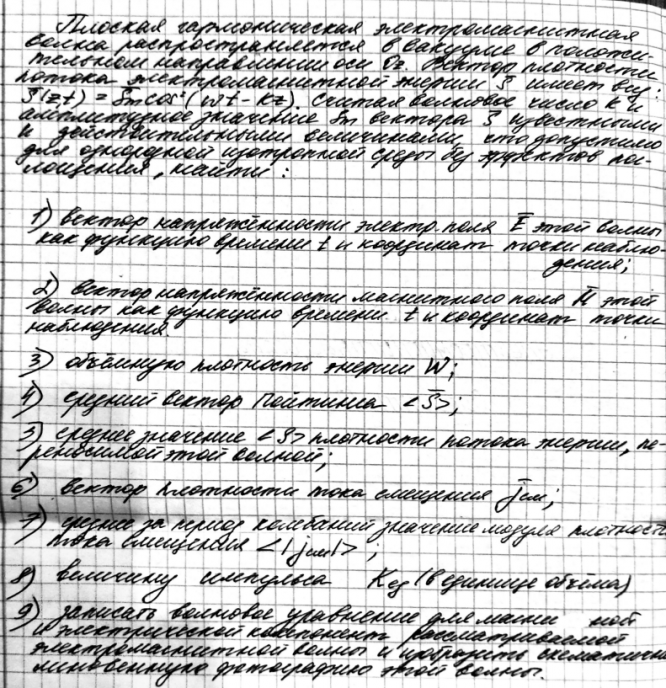 Плоская гармоническая электромагнитная
волна распространяется в вакууме в положи-
тельном направлении оси Oz. Вектор плотности
потока электромагнитной энергии S имеет вид:
S(zt) = Sm cos²(wt - kz). Считая волновое число k и
амплитудное значение Sm вектора S известными
и действительными величинами, что допустимо
для однородной изотропной среды без эффектов по-
глощения, найти:
1) вектор напряжённости электр. поля E этой волны
как функцию времени t и координат точки наблю-
дения;
2) вектор напряжённости магнитного поля H этой
волны как функцию времени t и координат точки
наблюдения.
3) объёмную плотность энергии W;
4) средний вектор Пойтинга <S>;
5) среднее значение <S> плотности потока энергии, пе-
реносимой этой волной;
6) вектор плотности тока смещения jсм;
7) среднее за период колебаний значение модуля плотности
тока смещения <|jсм|>;
8) величину импульса Kед (в единице объёма)
9) записать волновое уравнение для магни ной
и электрической компонент рассматриваемой
электромагнитной волны и изобразить схематично
мгновенную фотографию этой волны.